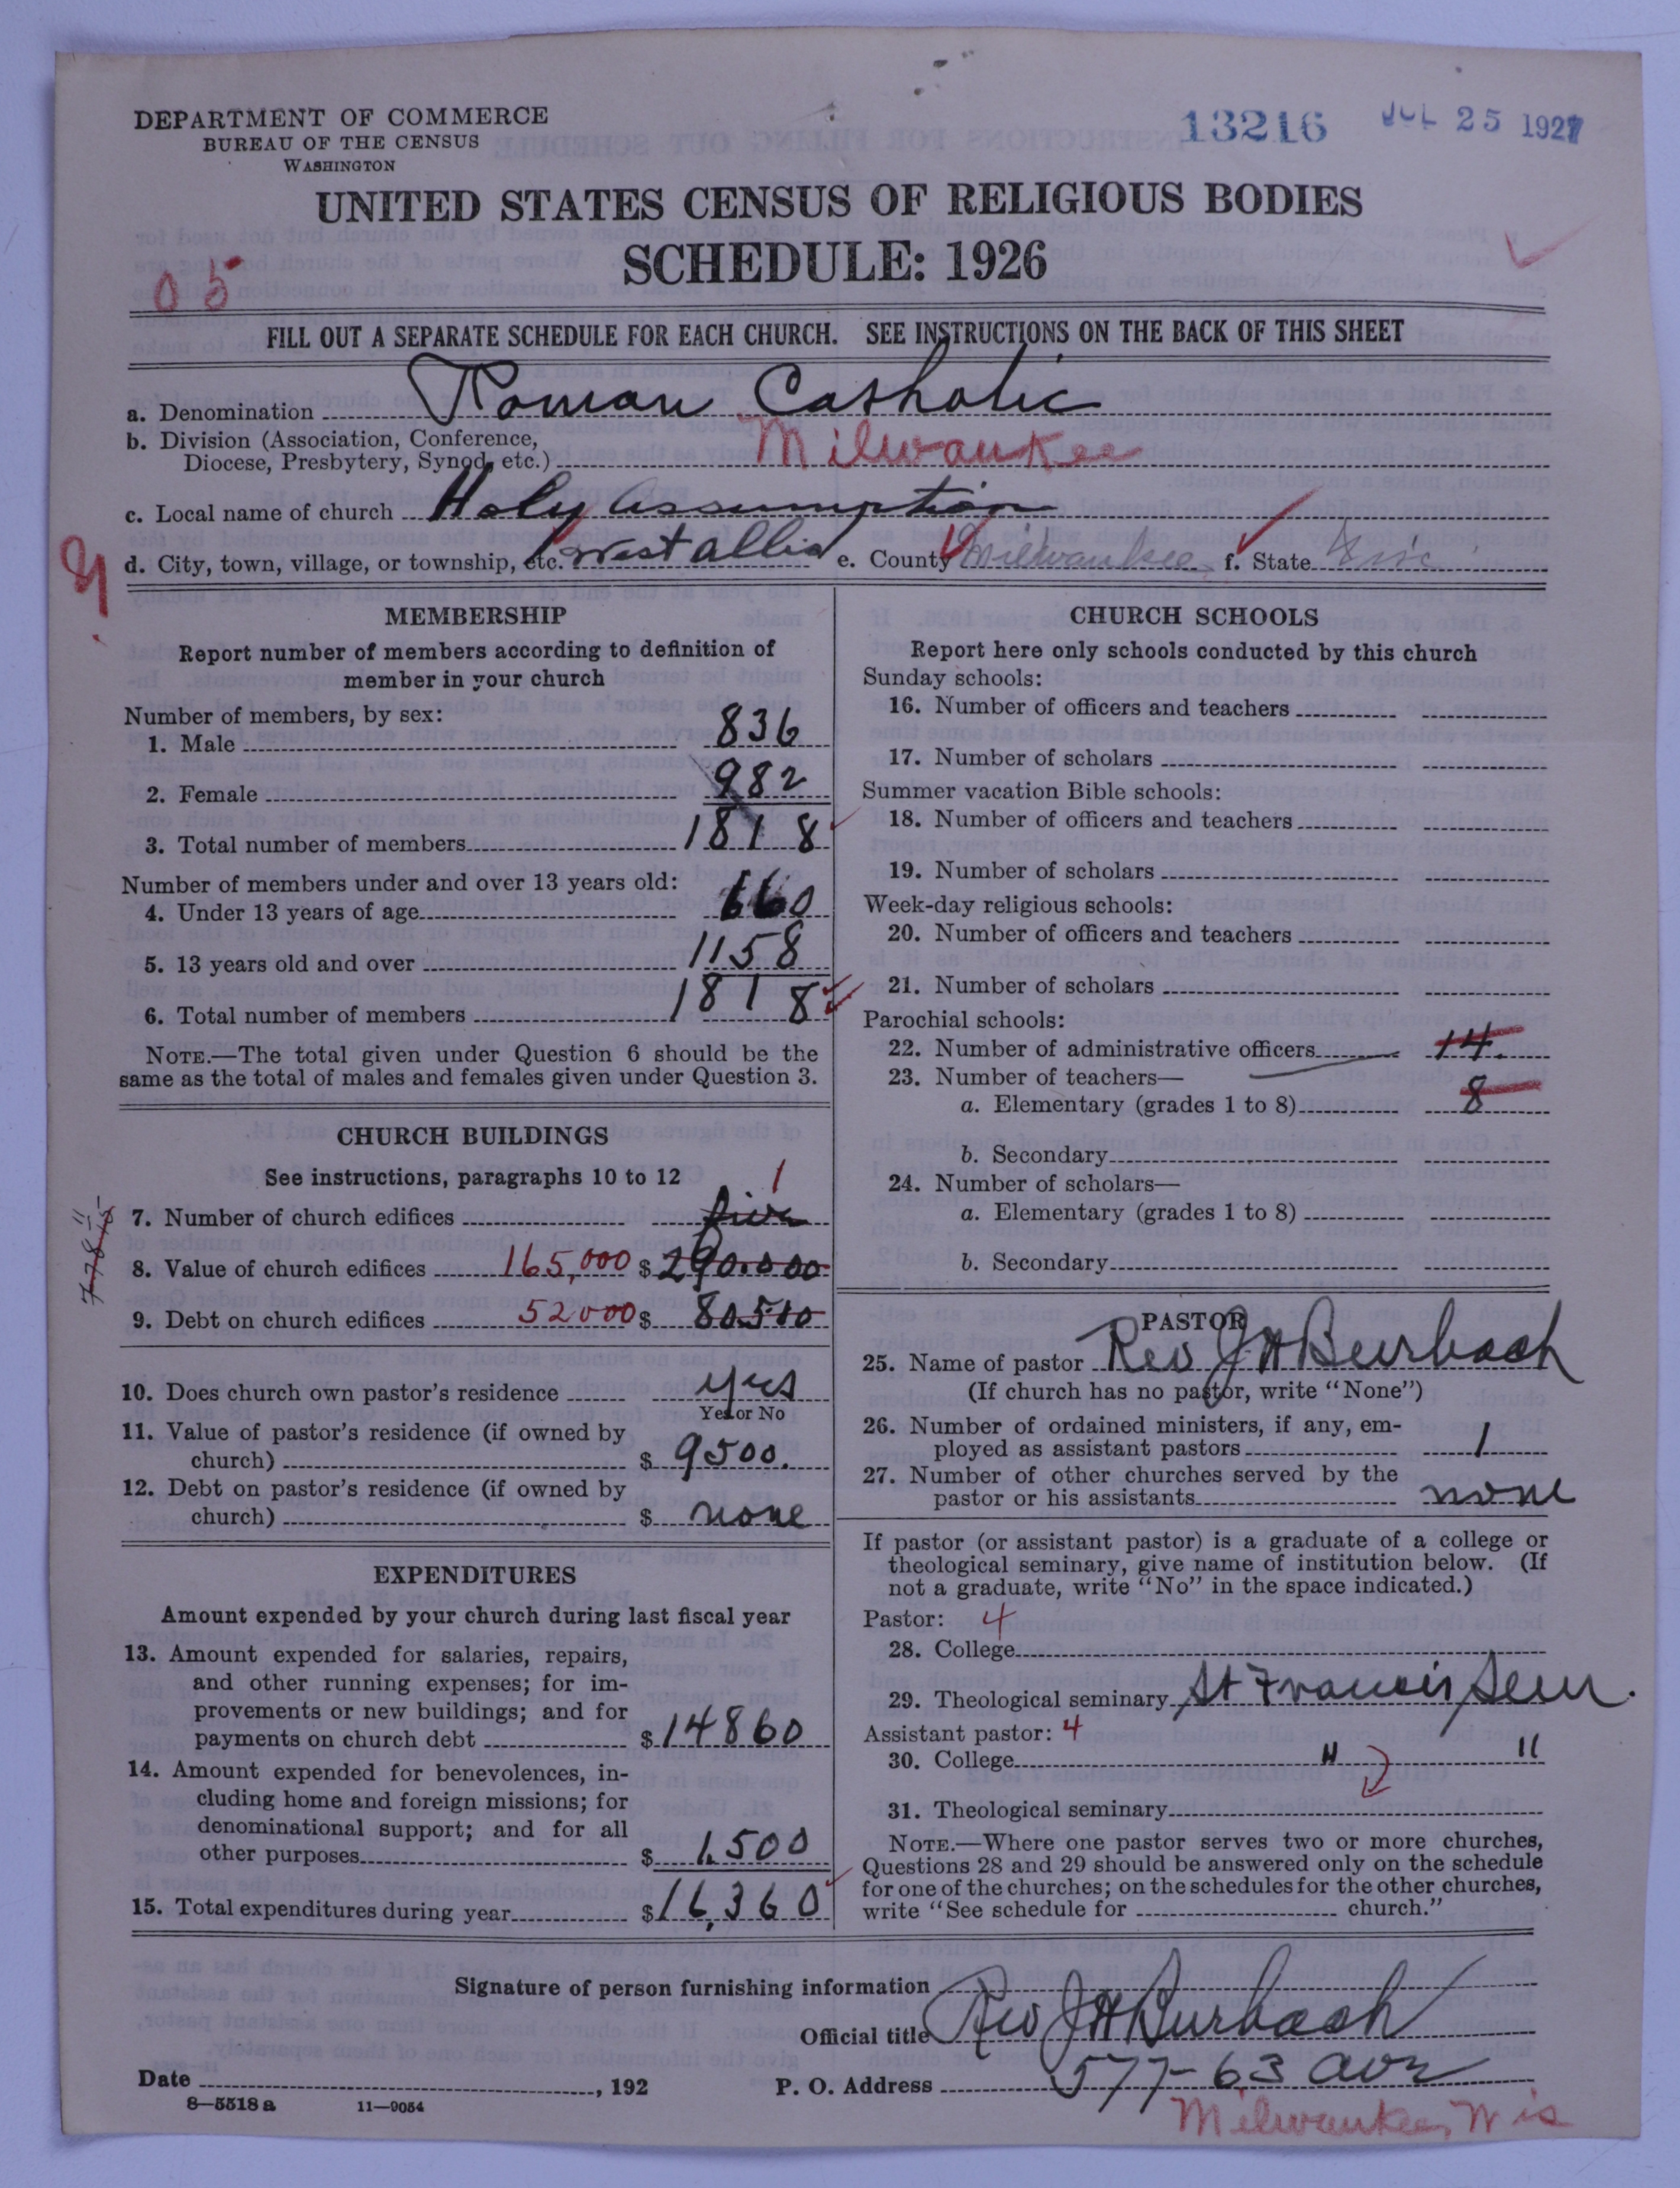 DEPARTMENT OF COMMERCE
BUREAU OF THE CENSUS
WASHINGTON
13216 JUL 25 1927
UNITED STATES CENSUS OF RELIGIOUS BODIES
SCHEDULE: 1926
05
FILL OUT A SEPARATE SCHEDULE FOR EACH CHURCH. SEE INSTRUCTIONS ON THE BACK OF THIS SHEET
a. Denomination Roman Catholic
b. Division (Association, Conference,
Diocese, Presbytery, Synod, etc.) Milwaukee
c. Local name of church Holy Assumption
d. City, town, village, or township, etc. West Allis e. County Milwaukee f. State Wisc
MEMBERSHIP
Report number of members according to definition of
member in your church
Number of members, by sex:
1. Male 836
2. Female 982
3. Total number of members 1818
Number of members under and over 13 years old:
4. Under 13 years of age 660
5. 13 years old and over 1158
6. Total number of members 1818
NOTE.—The total given under Question 6 should be the
same as the total of males and females given under Question 3.
CHURCH BUILDINGS
See instructions, paragraphs 10 to 12
1
7. Number of church edifices five
8. Value of church edifices 165,000 $ 290.000
9. Debt on church edifices 52000 $ 80510
10. Does church own pastor's residence yes
Yes or No
11. Value of pastor's residence (if owned by
church) $ 9500.
12. Debt on pastor's residence (if owned by
church) $ none
EXPENDITURES
Amount expended by your church during last fiscal year
13. Amount expended for salaries, repairs,
and other running expenses; for im-
provements or new buildings; and for
payments on church debt $ 14860
14. Amount expended for benevolences, in-
cluding home and foreign missions; for
denominational support; and for all
other purposes $ 1,500
15. Total expenditures during year $ 16,360
CHURCH SCHOOLS
Report here only schools conducted by this church
Sunday schools:
16. Number of officers and teachers
17. Number of scholars
Summer vacation Bible schools:
18. Number of officers and teachers
19. Number of scholars
Week-day religious schools:
20. Number of officers and teachers
21. Number of scholars
Parochial schools:
22. Number of administrative officers 14.
23. Number of teachers—
a. Elementary (grades 1 to 8) 8
b. Secondary
24. Number of scholars—
a. Elementary (grades 1 to 8)
b. Secondary
PASTOR
25. Name of pastor Rev J H Burbach
(If church has no pastor, write "None")
26. Number of ordained ministers, if any, em-
ployed as assistant pastors 1
27. Number of other churches served by the
pastor or his assistants none
If pastor (or assistant pastor) is a graduate of a college or
theological seminary, give name of institution below. (If
not a graduate, write "No" in the space indicated.)
Pastor: 4
28. College
29. Theological seminary St Francis Sem.
Assistant pastor: 4
30. College " "
31. Theological seminary
NOTE.—Where one pastor serves two or more churches,
Questions 28 and 29 should be answered only on the schedule
for one of the churches; on the schedules for the other churches,
write "See schedule for church."
Signature of person furnishing information Rev J H Burbach
Official title
Date , 192 P. O. Address 577-63 Ave
8—5518 a 11—9054 Milwaukee, Wis